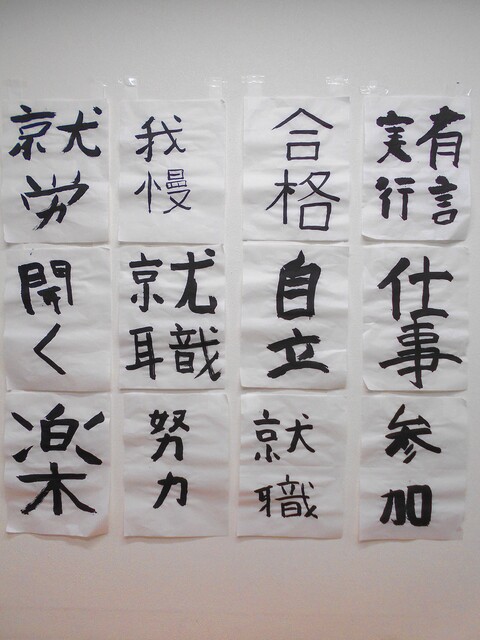 就労
我慢
合格
有言
実行
開く
就職
自立
仕事
楽
努力
就職
参加